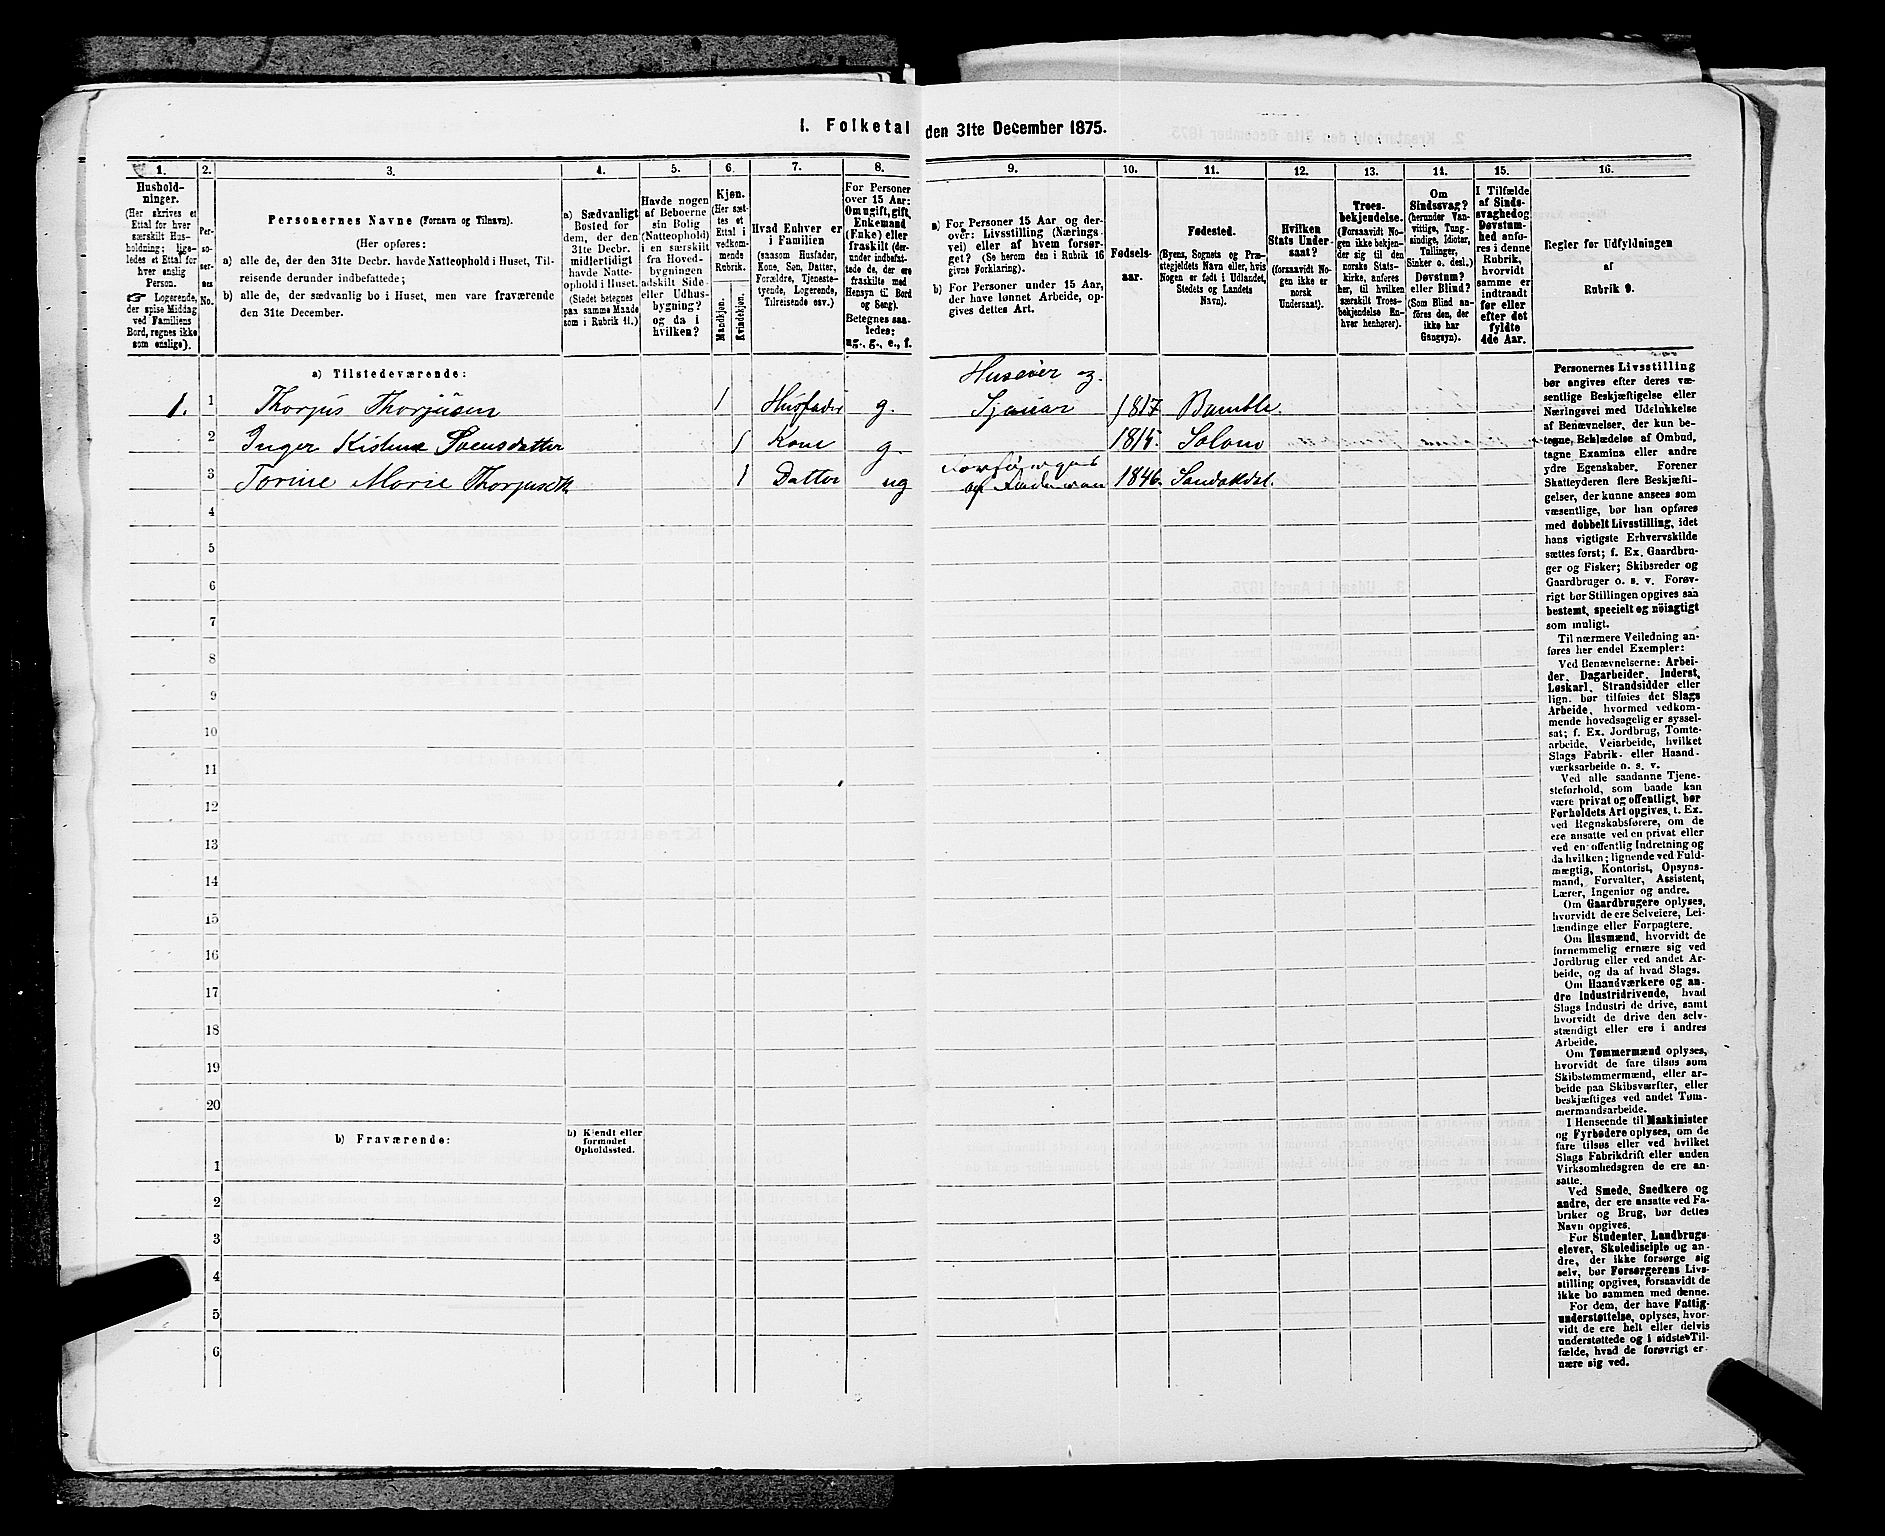 I. Folketal den 31te December 1875.
1.
Hushold-
ninger.
(Her skrives et
Ettal for hver
særskilt Hus-
holdning; lige-
ledes et Ettal
for hver
enslig
Person.
Logerende,
der spise Middag
ved Familiens
Bord, regnes ikke
som enslige).
2.
Per-
so-
ner-
nes
No.
3.
Personernes Navne (Fornavn og Tilnavn).
(Her opføres:
a) alle de, der den 31te Decbr. havde Natteophold i Huset, Til-
reisende derunder indbefattede;
b) alle de, der sædvanlig bo i Huset, men vare fraværende
den 31te December.
4.
a) Sædvanligt
Bosted for
dem, der den
31te Decbr.
midlertidigt
havde Natte-
ophold i Huset.
(Stedet betegnes
paa samme Maade
som i Rubrik 11.)
5.
Havde nogen
af Beboerne
sin Bolig
(Natteophold)
i en særskilt
fra Hoved-
bygningen
adskilt Side-
eller Udhus-
bygning?
og da i
hvilken?
6.
Kjøn.
(Her sæt-
tes et
Ettal i
vedkom-
mende
Rubrik.
Mandkjøn.
Kvindekjøn.
7.
Hvad Enhver er
i Familien
(saasom Husfader,
Kone, Søn, Datter,
Forældre, Tjeneste-
tyende, Logerende,
Tilreisende osv.)
8.
For Personer
over 15 Aar:
Om ugift, gift,
Enkemand
(Enke) eller
fraskilt (der-
under indbefat-
tede de, der ere
fraskilte med
Hensyn til Bord
og Seng).
Betegnes saa-
ledes:
ug., g., e., f.
9.
a) For Personer 15 Aar og der-
over: Livsstilling (Nærings-
vei) eller af hvem forsør-
get? (Se herom den i Rubrik 16
givne Forklaring).
b) For Personer under 15 Aar,
der have lønnet Arbeide, op-
gives dettes Art.
10.
Fødsels-
aar.
11.
Fødested.
(Byens, Sognets og Præ-
stegjeldets Navn eller, hvis
Nogen er født i Udlandet,
Stedets og Landets
Navn).
12.
Hvilken
Stats Under-
saat?
(forsaavidt No-
gen ikke er
norsk
Undersaat).
13.
Troes-
bekjendelse.
(Forsaavidt No-
gen ikke bekjen-
der sig til den
norske Stats-
kirke, anføres
her, til hvilken
særskilt Troes-
bekjendelse En-
hver henhører).
14.
Om
Sindssvag?
(herunder Van-
vittige, Tung-
sindige, Idioter,
Tullinger,
Sinker o. desl.)
Døvstum?
eller Blind?
(Som Blind an-
føres den, der
ikke har
Gangsyn).
15.
I Tilfælde
af Sinds-
svaghed og
Døvstum-
hed anfø-
res i denne
Rubrik,
hvorvidt
samme er
indtraadt
før eller
efter det
fyldte
4de Aar.
16.
Regler før Udfyldningen
af
Rubrik 9.
a) Tilstedeværende:
Huseier og.
1. 1 Thorjus Thorjusen 1 Husfader g. Sjauar 1817 Bamble.
2 Inger Kistine Svensdatter 1 Kone g. 1815 Solom
3 Torine Marie Thorjusdtr 1 Datter ug 1846. Sandøkdel.
4
5
6
7
8
9
10
11
12
13
14
15
16
17
18
19
20
b) Fraværende:
b) Kjendt eller
formodet
Opholdssted.
1
2
3
4
5
6
Personernes Livsstilling
bør angives efter deres væ-
sentlige Beskjæftigelse eller
Næringsvei med Udelukkelse
af Benævnelser, der kun be-
tegne, Beklædelse af Ombud,
tagne Examina eller andre
ydre Egenskaber. Forener
Skatteyderen flere Beskjæfti-
gelser, der kunne ansees som
væsentlige, bør han opføres
med dobbelt Livsstilling, idet
hans vigtigste Erhvervskilde
sættes først; f. Ex. Gaardbru-
ger og Fisker; Skibsreder og
Gaardbruger o. s. v. Forøv-
rigt bør Stillingen opgives saa
bestemt, specielt og nöiagtigt
som muligt.
Til nærmere Veiledning an-
føres her endel Exempler:
Ved Benævnelserne: Arbei-
der, Dagarbeider, Inderst,
Løskarl, Strandsidder eller
lign. bør tilføies det Slags
Arbeide, hvormed vedkom-
mende hovedsagelig er syssel-
sat; f. Ex. Jordbrug, Tomte-
arbeide, Veiarbeide, hvilket
Slags Fabrik- eller Haand-
værksarbeide o. s. v.
Ved alle saadanne Tjene-
steforhold, som baade kan
være privat og offentligt, bør
Forholdets Art opgives, t. Ex.
ved Regnskabsførere, om de
ere ansatte ved en privat eller
ved en offentlig Indretning og
da hvilken; lignende ved Fuld-
mægtig, Kontorist, Opsyns-
mand, Forvalter, Assistent,
Lærer, Ingeniør og andre.
Om Gaardbrugere oplyses,
hvorvidt de ere Selveiere, Lei-
lændinge eller Forpagtere.
Om Husmænd, hvorvidt de
fornemmelig ernære sig ved
Jordbrug eller ved andet Ar-
beide, og da af hvad Slags.
Om Haandværkere og an-
dre Industridrivende, hvad
Slags Industri de drive, samt
hvorvidt de drive den selv-
stændigt eller ere i andres
Arbeide.
Om Tømmermænd oplyses,
hvorvidt de fare tilsøs som
Skibstømmermænd, eller ar-
beide paa Skibsværfter, eller
beskjæftiges ved andet Tøm-
mermandsarbeide.
I Henseende til Maskinister
og Fyrbødere oplyses, om de
fare tilsøs eller ved hvilket
Slags Fabrikdrift eller anden
Virksomhedsgren de ere an-
satte.
Ved Smede, Snedkere og
andre, der ere ansatte ved Fa-
briker og Brug, bør dettes
Navn opgives.
For Studenter, Landbrugs-
elever, Skoledisciple og an-
dre, der ikke forsørge sig
selv, bør Forsørgerens Livs-
stilling opgives, forsaavidt de
ikke bo sammen med denne.
For dem, der have Fattig-
understøttelse, oplyses, hvor-
vidt de ere helt eller delvis
understøttede og i sidste Til-
fælde, hvad de forøvrigt er-
nære sig ved.